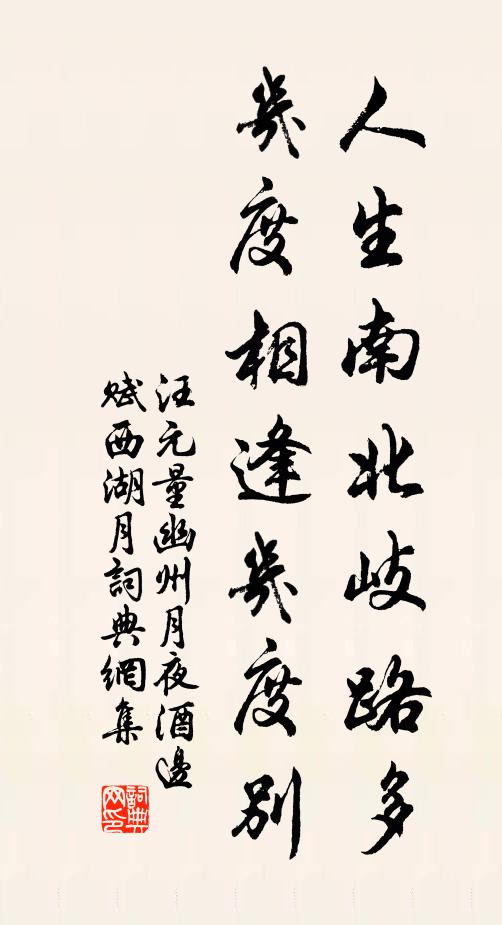 人生南北歧路多
幾度相逢幾度別
汪元量幽州月夜酒邊
賦西湖月詞典網集
詞典
网印